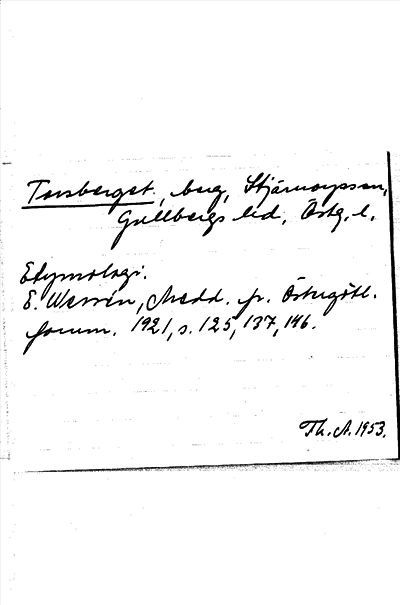 Torsberget, berg, Stjärnorpssn,
Gullbergs hd, Östg. l.
Etymologi.
E. Wessén, Medd. fr. Östergötl.
fornm. 1921, s. 125, 137, 146.
Th. A. 1953.